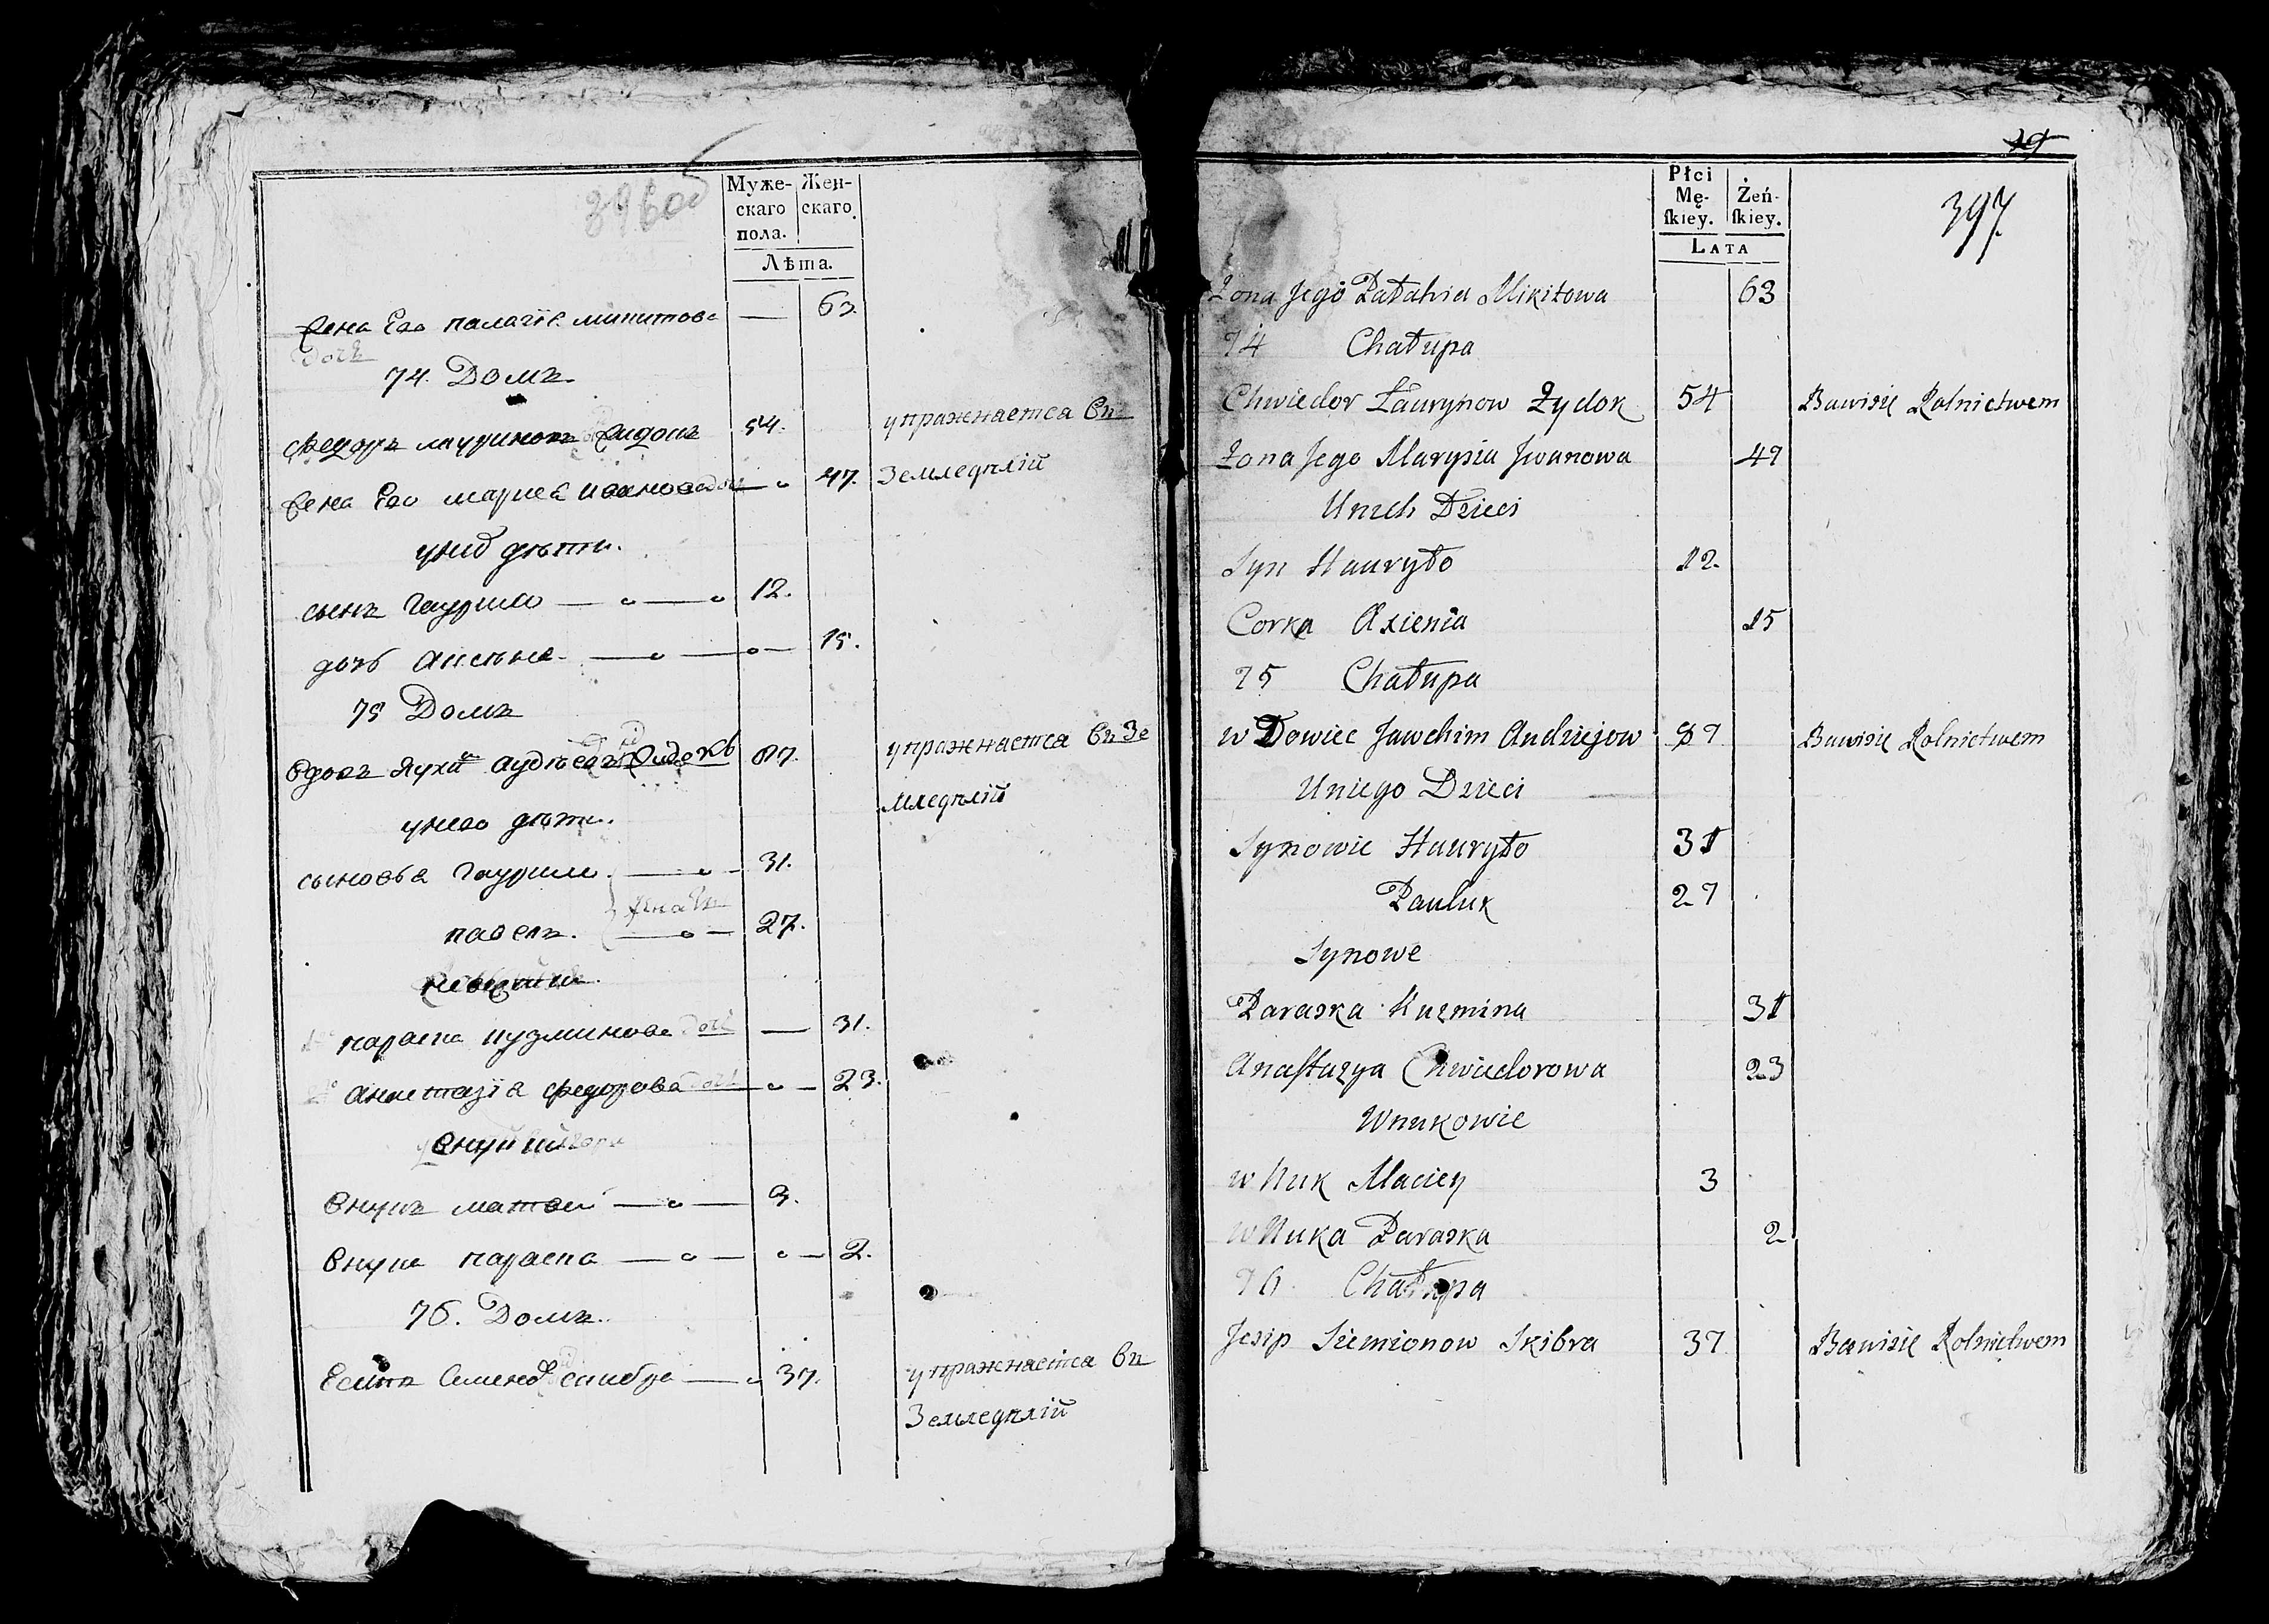 396об
Муже- Жен-
скаго скаго
пола.
Лѣта.
жена Его палагiя микитова — 63.
дочь
74. Домъ.
Федоръ лауриновъ жидокъ 54. упражняется въ
жена Его марися иванова дочь 47. Земледѣлiй
у них дѣти.
сынъ гаурило 12.
дочь аксѣня 15.
75 Домъ
вдовъ яухим андрѣевъ жидокъ 87. упражняется въ Зе
мледѣлiй
у него дѣти.
сыновья гаурило 31.
павелъ. 27.
невѣстки.
параска кузминова дочь — 31.
анастазiя федорова дочь 23.
внуки
внукъ матвей 3.
внука параска 2.
76. Домъ.
Есипъ Семенов скибра 37. упражняется въ
Земледѣлiй
19
Płci
Mę- Żeń-
ſkiey. ſkiey.
Lata
397
Żona Jego Pałahia Mikitowa 63
74 Chałupa
Chwiedor Łaurynow Żydok 54 Bawisię Rolnictwem
Żona Jego Marysia Jwanowa 47
Unich Dzieci
Syn Hauryło 12.
Corka Axienia 15
75 Chałupa
w Dowiec Jawchim Andziejow 87 Bawisię Rolnictwem
Uniego Dzieci
Synowie Hauryło 31
Pauluk 27
Synowe
Paraska Kuzmina 31
Anaſtazya Chwiedorowa 23
Wnukowie
w Nuk Maciey 3
w Nuka Paraska 2
76 Chałupa
Jesip Siemionow Skibra 37 Bawisię Rolnictwem